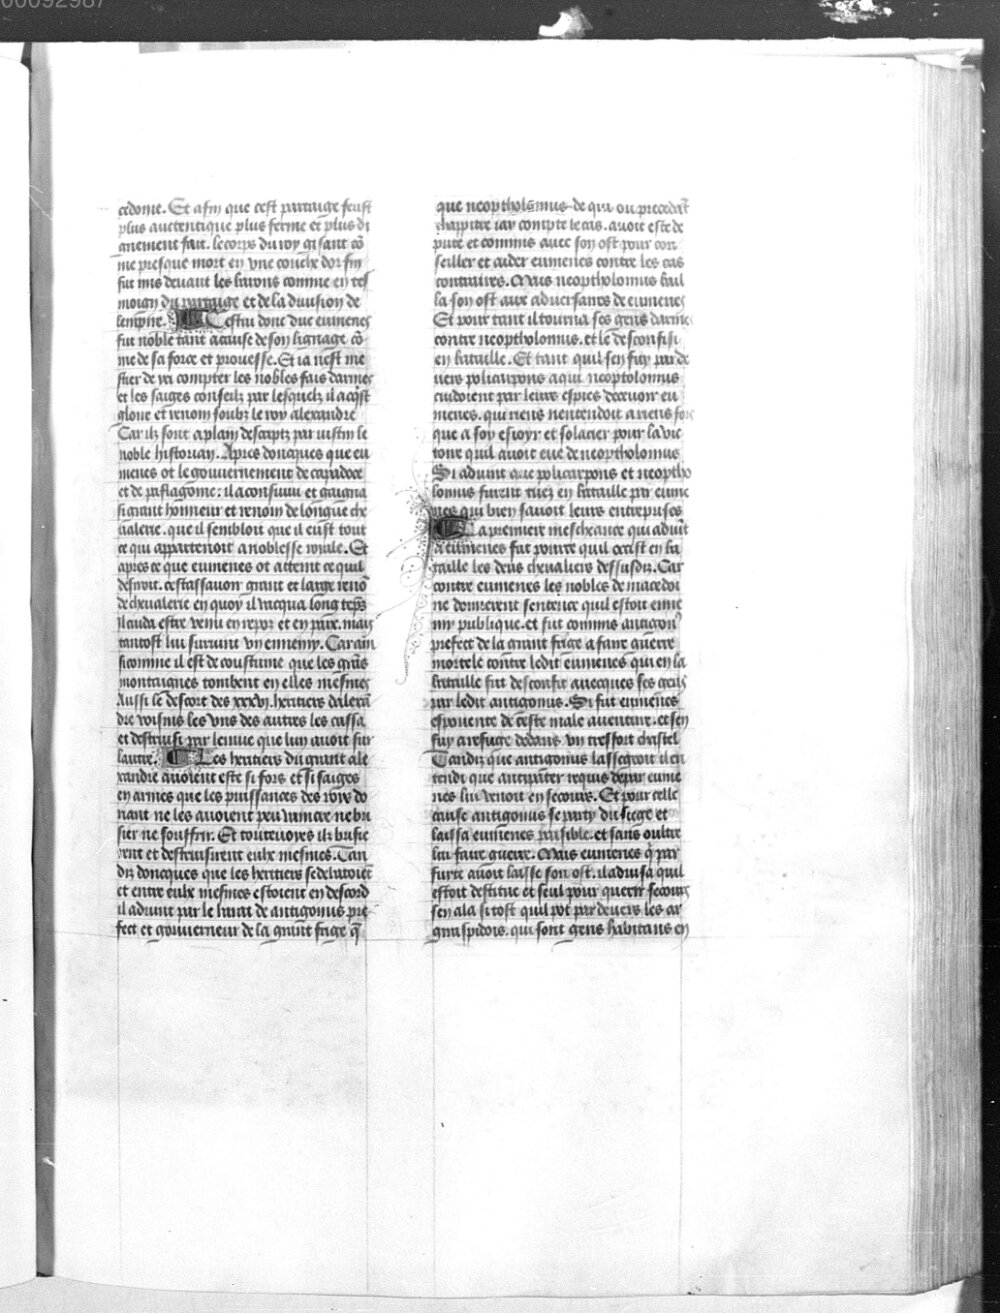 00092987
cedonie. Et afin que cest partaige feust
plus auctentique plus ferme et plus di
gnement fait. le corps du roy gisant cõ
me presque mort en vne couche dor fin
fut mis deuant les barons comme en tes
moign du partaige et de la diuision de
lempire. Cestui donc duc eumenes
fut noble tant a cause de son lignage cõ
me de sa force et prouesse. Et ia nest me
stier de cy compter les nobles fais darmes
et les saiges conseilz par lesquelz il acqist
gloire et renom soubz le roy alexandre
Car ilz sont a plain descriptz par iustin le
noble historian. Apres doncques que eu
menes ot le gouuernement de capadoce
et de paflagome: il aconsuiui et gaigna
si grant honneur et renom de longue che
ualerie. que il sembloit que il eust tout
ce qui appartenoit a noblesse royale. Et
apres ce que eumenes ot attent ce quil
desiroit. cestassauoir grant et large renõ
de cheualerie en quoy il vacqua long tẽps
il cuida estre venu en repoz et en paix. mais
tantost lui suruint vn ennemy. Car ain
si comme il est de coustume que les grãs
montaignes tombent en elles mesmes
Aussi le descort des xxxvi. heritiers dalexã
dre voisins les vns des autres les cassa
et destruisi par lenuie que lun auoit sur
lautre. Les heritiers du grant ale
xandre auoient este si fors et si saiges
en armes que les puissances des roys do
riant ne les auoient peu vaincre ne bri
sier ne souffrir. Et toutevoyes ilz brisie
rent et destruisirent eulx mesmes. Tan
diz doncques que les heritiers se debatoiẽt
et entre eulx mesmes estoient en descord
il aduint par le barat de antigonus pre
fect et gouuerneur de la grant frige q̃
que neoptholomus de qui ou precedẽt
chappitre iay compte le cas. auoit este de
pute et commis auec son ost pour con
seiller et aider eumenes contre les cas
contraires. Mais neoptholomus bail
la son ost aux aduersaires de eumenes
Et pour tant il tourna ses gens darmes
contre neoptholomus. et le desconfisi
en bataille. Et tant quil sen fuy par de
uers policarpons a qui neoptolomus
cuidoient par leurs espies deceuoir eu
menes. qui riens nentendoit a riens fors
que a soy esioyr et solacier pour la vic
toire quil auoit eue de neoptholomus
Si aduint que policarpons et neoptho
lomus furent tuez en bataille par eume
nes qui bien sauoit leurs entreprises
La premiere mescheance qui aduĩt
a eumenes fut pource quil occist en ba
taille les deux cheualiers dessusdiz. Car
contre eumenes les nobles de macedoi
ne donnerent sentence quil estoit enne
my publique. et fut commis antigon9
prefect de la grant frige a faire guerre
mortele contre ledit eumenes qui en la
bataille fut desconfit auecques ses gens
par ledit antigonus. Si fut eumenes
espouente de ceste male auenture. et sen
fuy a refuge dedans vn tresfort chastel
Tandiz que antigonus lassegeoit il en
tendi que antipater requis depar eume
nes lui venoit en secours. Et pour celle
cause antigonus se party du siege et
laissa eumenes paisible. et sans oultre
lui faire guerre. Mais eumenes q̃ par
fuyte auoit laisse son ost. il aduisa quil
estoit destitue et seul pour querir secours
sen ala si tost quil pot par deuers les ar
giraspidois. qui sont gens habitans en